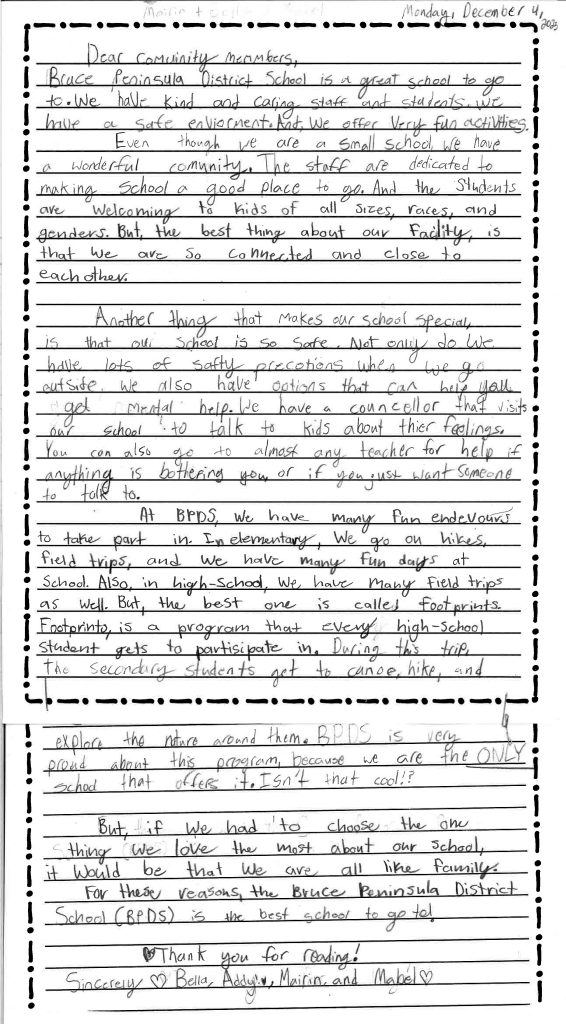 Mairin +
Monday, December 4, 2023
Dear comuinity memmbers,
Bruce Peninsula District School is a great school to go
to. We have kind and caring staff and students. We
have a safe enviorment. And, We offer very fun activities.
Even though we are a small school, we have
a wonderful comunity. The staff are dedicated to
making school a good place to go. And the students
are welcoming to kids of all sizes, races, and
genders. But, the best thing about our Facility, is
that we are so connected and close to
each other.
Another thing that makes our school special,
is that our school is so safe. Not only do we
have lots of safty precotions when we go
outside. We also have options that can help you
get mental help. We have a councellor that visits
our school to talk to kids about thier feelings.
You can also go to almost any teacher for help if
anything is bothering you, or if you just want someone
to talk to.
At BPDS, we have many fun endevours
to take part in. In elementary, we go on hikes,
field trips, and we have many fun days at
school. Also, in high-school, we have many field trips
as well. But, the best one is called footprints.
Footprints, is a program that every high-school
student gets to partisipate in. During this trip,
the secondary students get to canoe, hike, and
explore the nature around them. BPDS is very
proud about this program, because we are the ONLY
school that offers it. Isn't that cool!?
But, if we had to choose the one
thing we love the most about our school,
it would be that we are all like family.
For these reasons, the Bruce Peninsula District
School (BPDS) is the best school to go to!
♥Thank you for reading!
Sincerely ♡ Bella, Addy♥, Mairin, and Mabel♡